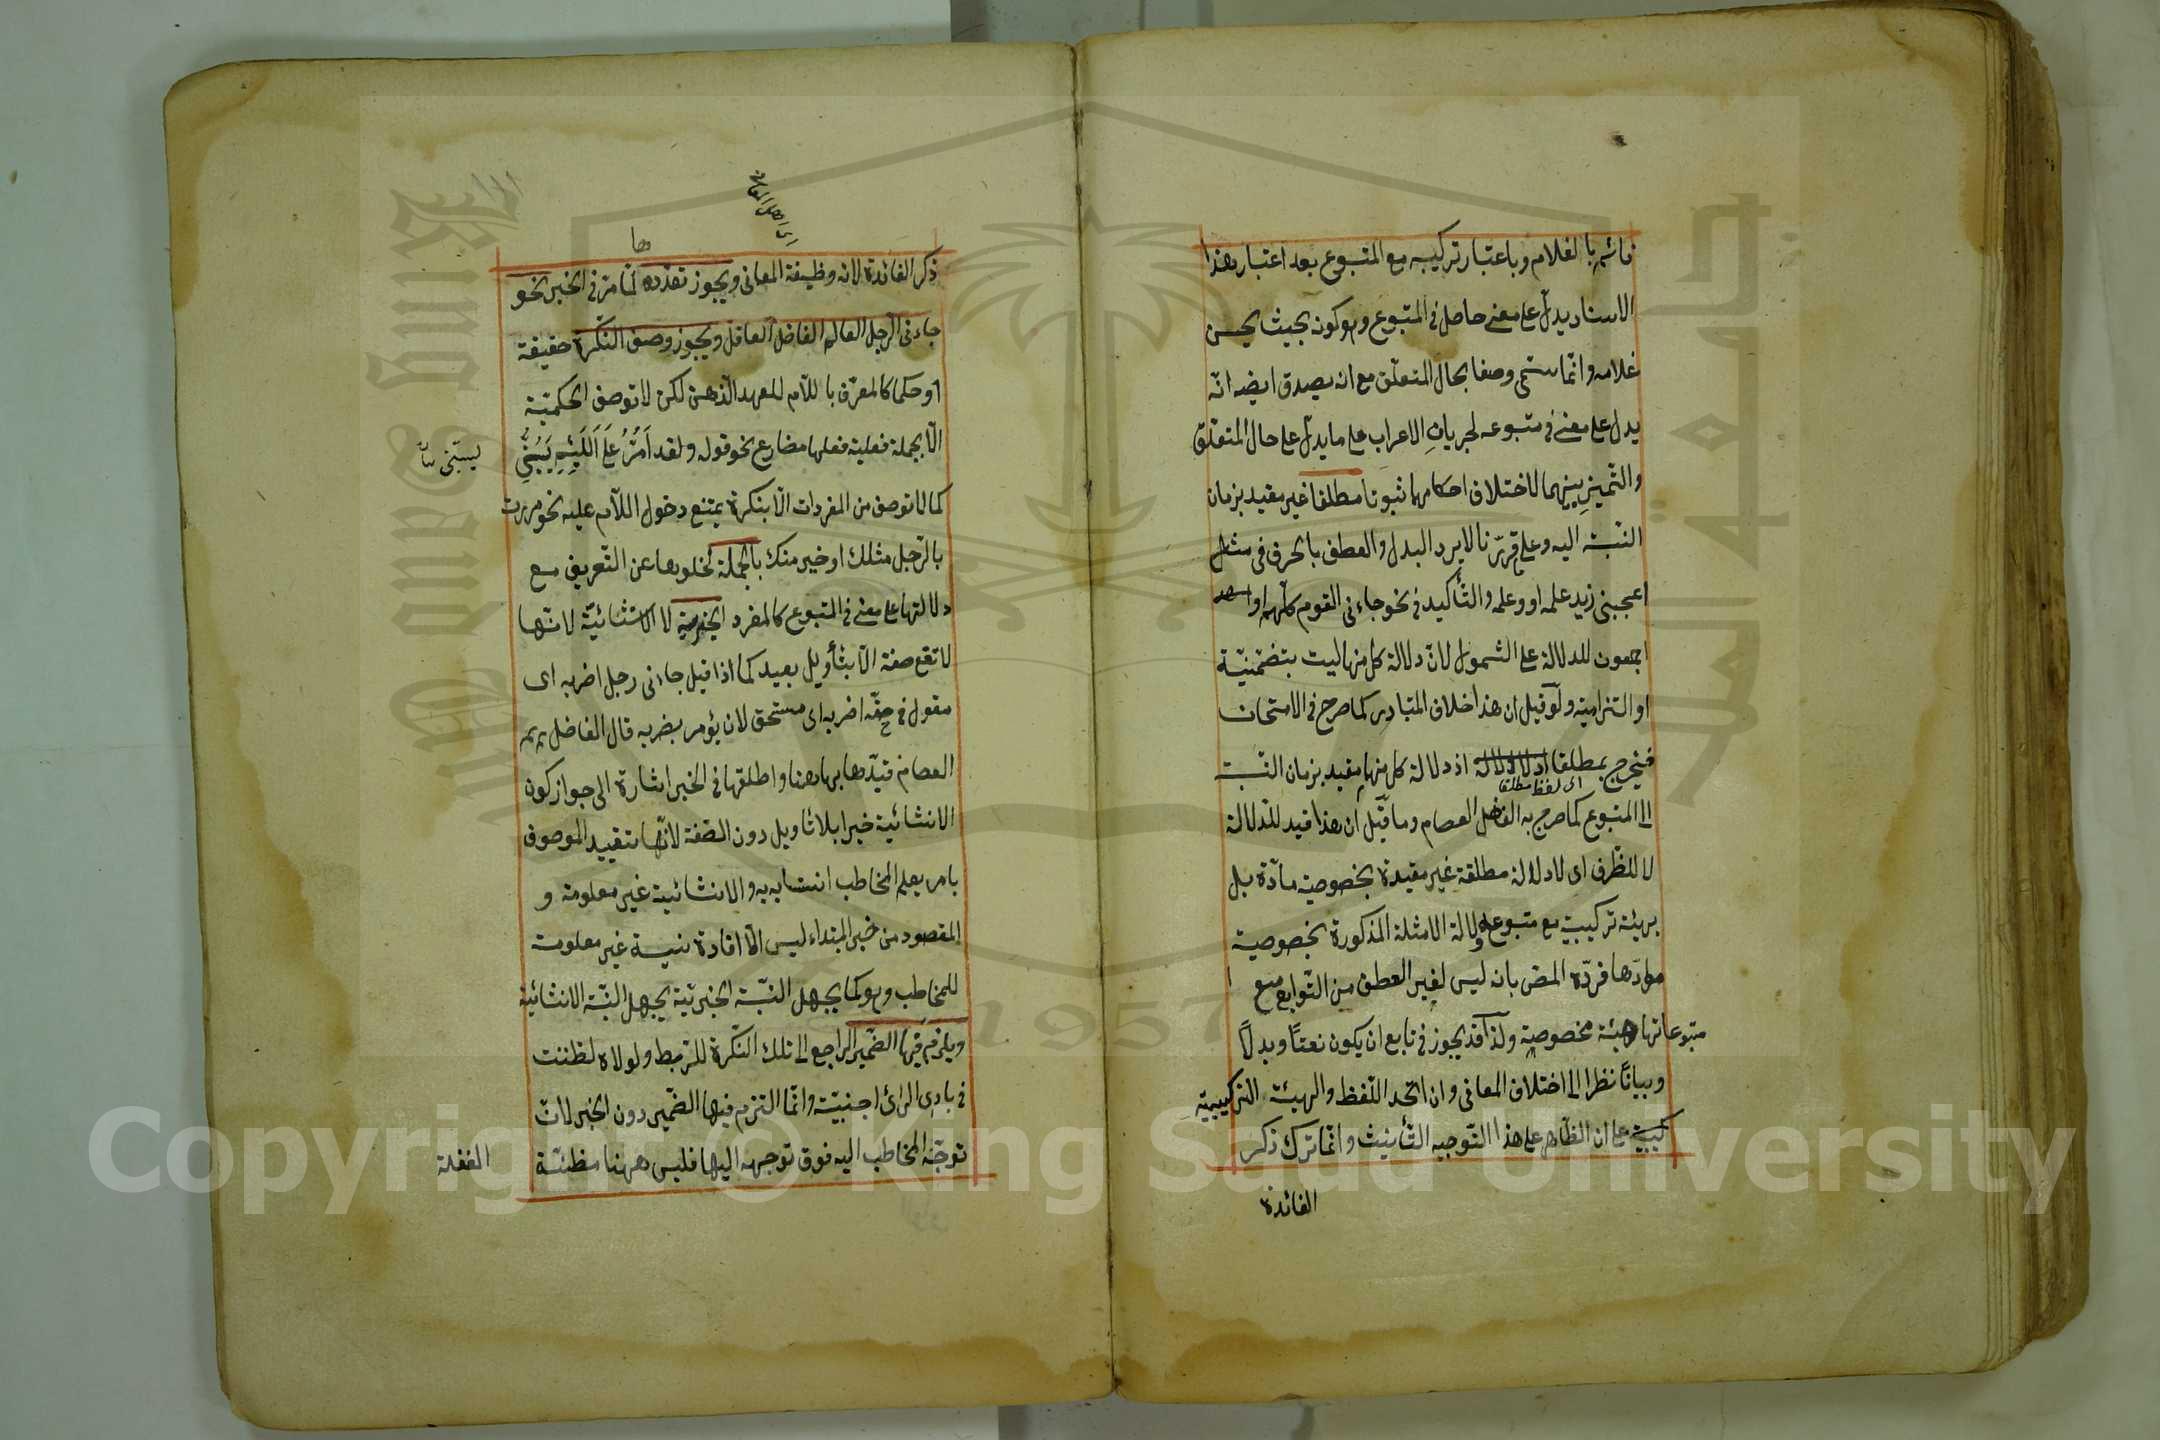 قائم بالغلام وباعتبار تركيبه مع المتبوع بعد اعتبار هذا
الاسناد يدل على معنى حاصل فى المتبوع وهو كونه بحيث يحسن
غلامه وانما سمى وصفا بحال المتعلق مع انه يصدق ايضا انه
يدل على معنى فى متبوعه لجريان الاعراب على ما يدل على حال المتعلق
والتمييز بينهما لاختلاف احكامهما ثبوتا مطلقا غير مقيد بزمان
النسبة اليه وعلى ما قررنا لا يرد البدل والعطف بالحرف فى مثل
اعجبنى زيد علمه او وعلمه والتأكيد فى نحو جاءنى القوم كلهم او
اجمعون للدلالة على الشمول لان دلالة كل منها ليست بتضمنية
او التزامية ولو قيل ان هذا خلاف المتبادر كما صرح فى الامتحان
فيخرج بمطلقا اذ دلالة كل منها مقيد بزمان النسبة
اى لفظ مطلقا
الى المتبوع كما صرح به الفاضل العصام وما قيل ان هذا قيد للدلالة
لا للظرف اى لا دلالة مطلقة غير مقيدة بخصوصية مادة بل
بهيئة تركيبية مع متبوعه ودلالة الامثلة المذكورة بخصوصية
موادها فرده المص بان ليس لغير العطف من التوابع مع
متبوعاتها هيئة مخصوصة ولذا قد يجوز فى تابع ان يكون نعتا وبدلا
وبيانا نظرا الى اختلاف المعانى وان اتحد اللفظ والهيئة التركيبية
كيبية على ان الظاهر على هذا التوجيه التأنيث وانما ترك ذكر
الفائدة
ذكر الفائدة لانه وظيفة المعانى ويجوز تعدده لما مر فى الخبر نحو
جاءنى الرجل العالم الفاضل العاقل ويجوز وصف النكرة حقيقة
او حكما كالمعرف باللام للعهد الذهنى لكن لا توصف الحكمية
الا بجملة فعلية فعلها مضارع نحو قوله ولقد اَمُرُّ عَلَى اللَّئِيمِ يَسُبُّنِى
كما لا توصف من المفردات الا بنكرة يمتنع دخول اللام عليه نحو مررت
بالرجل مثلك او خير منك بالجملة لخلوها عن التعريف مع
دلالتها على معنى فى المتبوع كالمفرد الخبرية لا الانشائية لانها
لا تقع صفة الا بتأويل بعيد كما اذا قيل جاءنى رجل اضربه اى
مقول فى حقه اضربه اى مستحق لان يؤمر بضربه قال الفاضل
العصام قيدها بها ههنا واطلقها فى الخبر اشارة الى جواز كون
الانشائية خبرا بلا تأويل دون الصفة لانها تقييد الموصوف
بامر يعلم المخاطب انتسابه به والانشائية غير معلومة و
المقصود من خبر المبتداء ليس الا افادة نسبة غير معلومة
للمخاطب وهو كما يجهل النسبة الخبرية يجهل النسبة الانشائية
ويلزم فيها الضمير الراجع الى تلك النكرة للربط ولولاه لظننت
فى بادى الرأى اجنبية وانما التزم فيها الضمير دون الخبر لان
توجه المخاطب اليه فوق توجهه اليها فليس ههنا مظنة
الغفلة
Copyright © King Saud University
1957